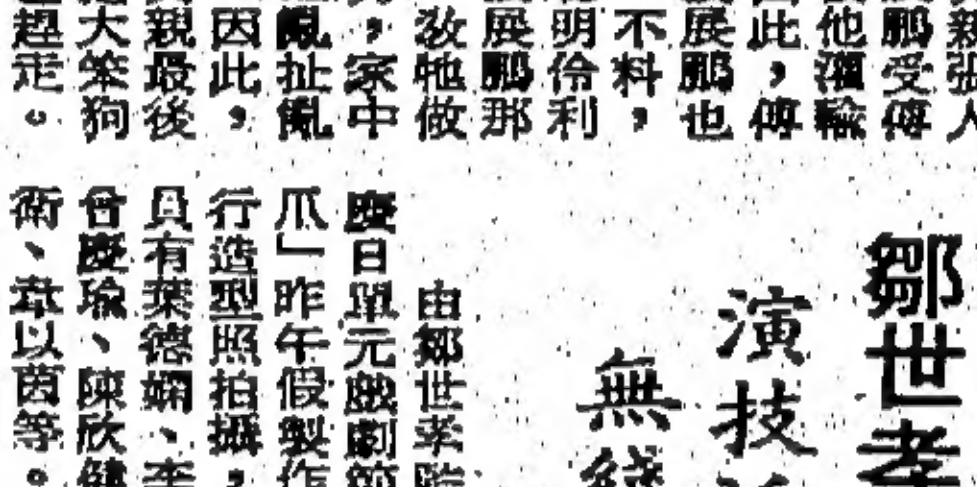 親張人
鵬受傅
他灌輸
此,傅
展鵬也
不料,
明伶利
展鵬那
教牠做
,家中
亂扯亂
因此,
親最後
大笨狗
趕走。
鄒世孝
演技
無綫
由鄒世孝監
慶日單元戲劇節
爪」昨午假製作
行造型照拍攝,
員有葉德嫻、李
曾慶瑜、陳欣健
衛、韋以茵等。